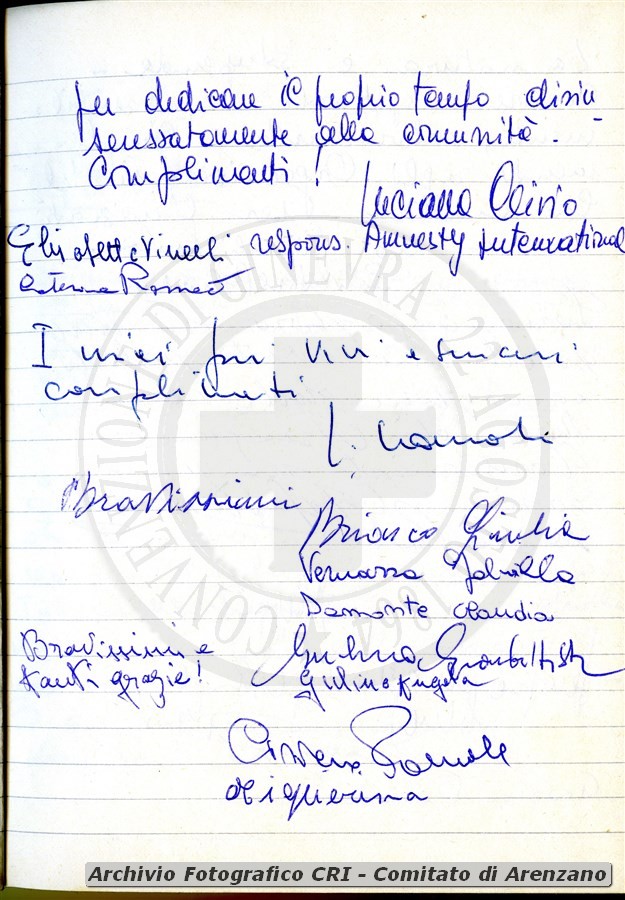 per dedicare il proprio tempo disin-
teressatamente alla comunità.
Complimenti!
Luciana Olivio
Elisabetta Vinelli respons. Amnesty International
Caterina Romeo
I miei più vivi e sinceri
complimenti
Bravissimi
Briasco Giulia
Vernazza Gabriella
Damonte Claudia
Bravissimi e
tanti grazie!
Giulino Angela
CONVENZIONE DI GINEVRA 22 AGOSTO 1864
Archivio Fotografico CRI - Comitato di Arenzano